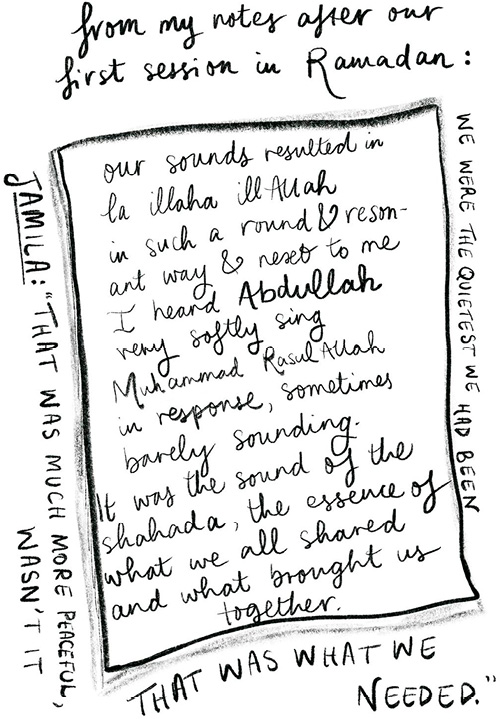 from my notes after our
first session in Ramadan:
our sounds resulted in
la illaha illAllah
in such a round & reson-
ant way & next to me
I heard Abdullah
very softly sing
Muhammad Rasul Allah
in response, sometimes
barely sounding.
It was the sound of the
shahada, the essence of
what we all shared
and what brought us
together.
WE WERE THE QUIETEST WE HAD BEEN
JAMILA: "THAT WAS MUCH MORE PEACEFUL,
WASN'T IT
THAT WAS WHAT WE
NEEDED."